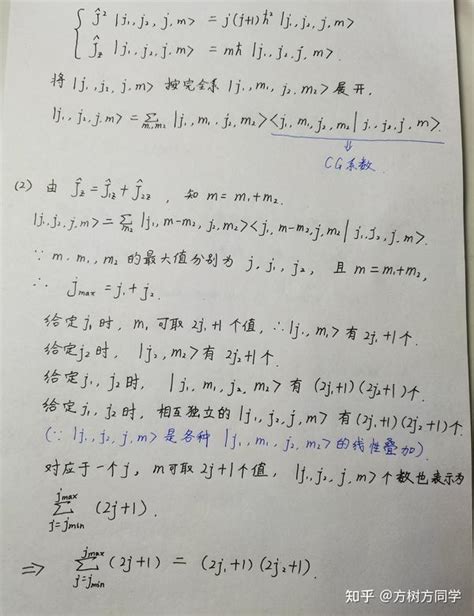 { ĵ² |j₁, j₂, j, m> = j(j+1)ħ² |j₁, j₂, j, m>
ĵz |j₁, j₂, j, m> = mħ |j₁, j₂, j, m>.
将 |j₁, j₂, j, m> 按完全系 |j₁, m₁, j₂, m₂> 展开,
|j₁, j₂, j, m> = ∑_{m₁,m₂} |j₁, m₁, j₂, m₂><j₁, m₁, j₂, m₂| j₁, j₂, j, m>.
↓
CG系数.
(2) 由 ĵz = ĵ₁z + ĵ₂z , 知 m = m₁+m₂.
|j₁, j₂, j, m> = ∑_{m₂} |j₁, m-m₂, j₂, m₂><j₁, m-m₂, j₂, m₂| j₁, j₂, j, m>.
∵ m, m₁, m₂ 的最大值分别为 j, j₁, j₂, 且 m = m₁+m₂,
∴ j_max = j₁+j₂.
给定 j₁ 时, m₁ 可取 2j₁+1 个值, ∴ |j₁, m₁> 有 2j₁+1 个.
给定 j₂ 时, |j₂, m₂> 有 2j₂+1 个.
给定 j₁, j₂ 时, |j₁, m₁, j₂, m₂> 有 (2j₁+1)(2j₂+1) 个.
给定 j₁, j₂ 时, 相互独立的 |j₁, j₂, j, m> 有 (2j₁+1)(2j₂+1) 个.
(∵ |j₁, j₂, j, m> 是各种 |j₁, m₁, j₂, m₂> 的线性叠加).
对应于一个 j, m 可取 2j+1 个值, |j₁, j₂, j, m> 个数也表示为
∑_{j=j_min}^{j_max} (2j+1).
⇒ ∑_{j=j_min}^{j_max} (2j+1) = (2j₁+1)(2j₂+1).
知乎 @方树方同学